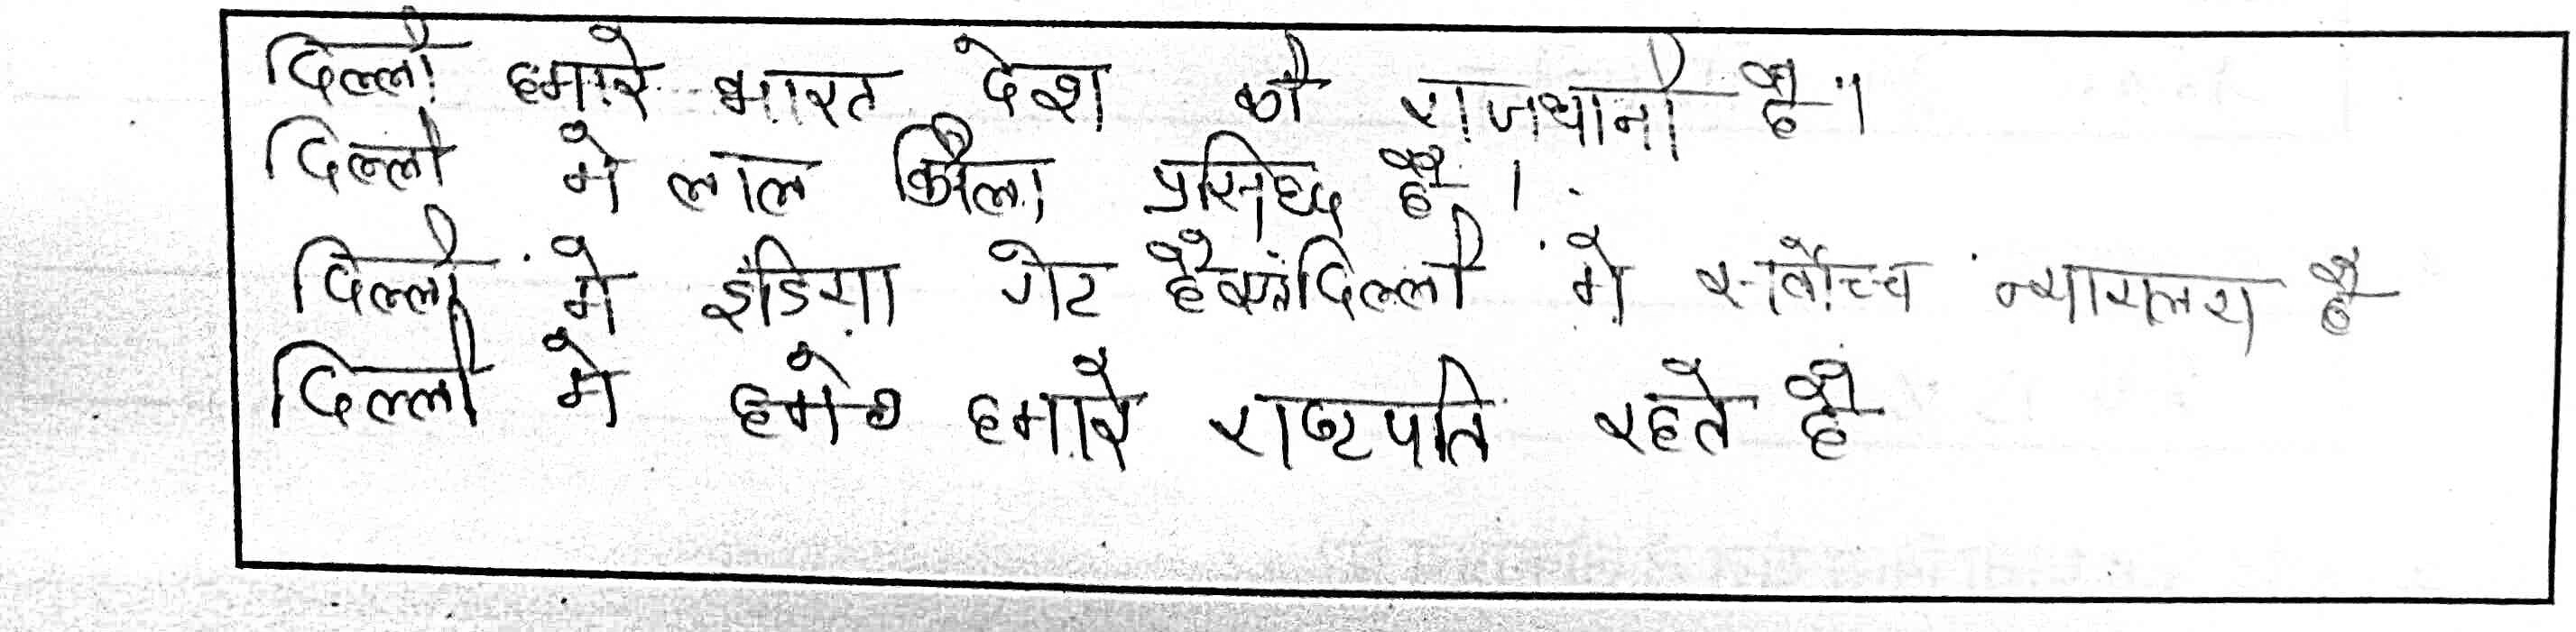 दिल्ली हमारे भारत देश की राजधानी है।
दिल्ली मे लाल किला प्रसिध्द है।
दिल्ली मे इंडिया गेट है दिल्ली मे सर्वोच्च न्यायलय है
दिल्ली मे हमारे राष्टपति रहते है